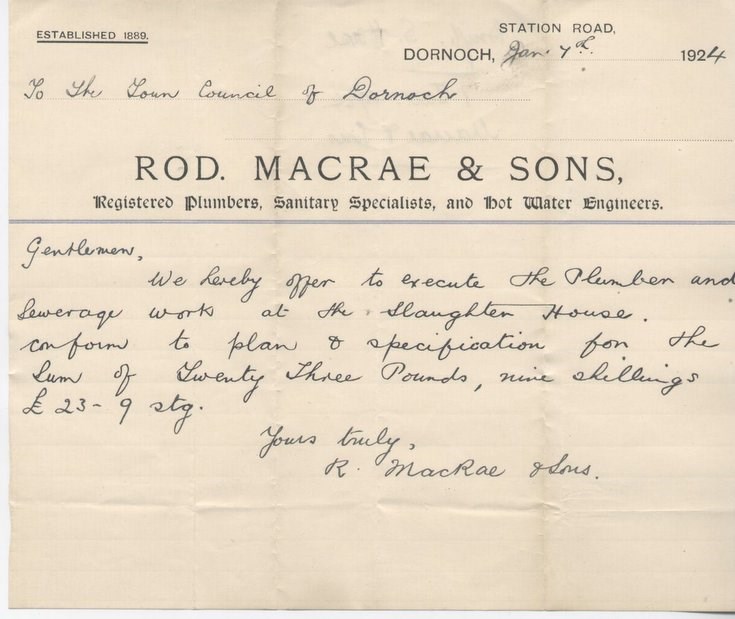 ESTABLISHED 1889.
STATION ROAD,
DORNOCH, Jan. 7th. 1924
To The Town Council of Dornoch
ROD. MACRAE & SONS,
Registered Plumbers, Sanitary Specialists, and Hot Water Engineers.
Gentlemen,
We hereby offer to execute the Plumber and
Sewerage work at the Slaughter House.
conform to plan & specification for the
Sum of Twenty Three Pounds, nine shillings
£ 23-9 stg.
Yours truly,
R. MacRae & Sons.